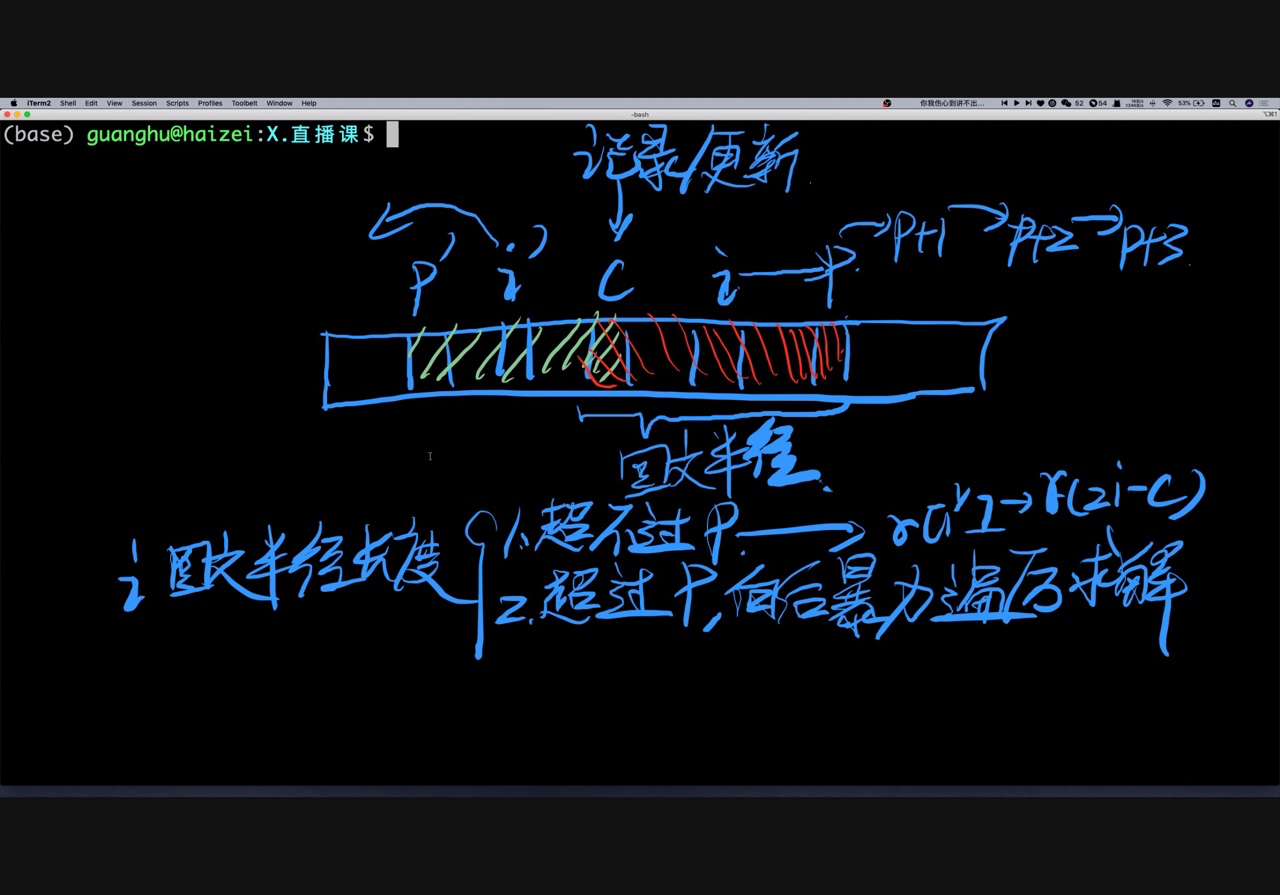 iTerm2 Shell Edit View Session Scripts Profiles Toolbelt Window Help 你我伤心到讲不出... 52 54 53%
-bash
(base) guanghu@haizei:X.直播课$
记录/更新
P' i' C i P P+1 P+2 P+3
回文半径
i 回文半径长度
1. 超不过 P → r[i'] → r(2i-C)
2. 超过 P, 向后暴力遍历求解